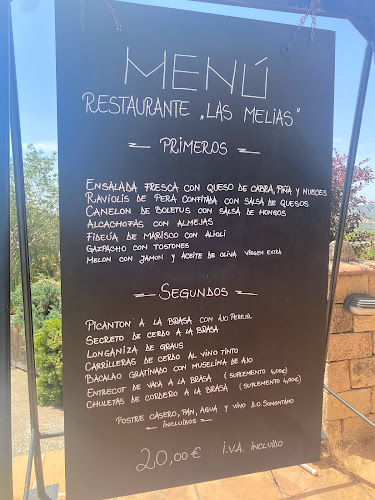 MENÚ
RESTAURANTE „LAS MELIAS"
- PRIMEROS -
ENSALADA FRESCA CON QUESO DE CABRA, PIÑA Y NUECES
RAVIOLIS DE PERA CONFITADA CON SALSA DE QUESOS
CANELON DE BOLETUS CON SALSA DE HONGOS
ALCACHOFAS CON ALMEJAS
FIDEUÀ DE MARISCO CON ALIOLI
GAZPACHO CON TOSTONES
MELON CON JAMON Y ACEITE DE OLIVA VIRGEN EXTRA
- SEGUNDOS -
PICANTON A LA BRASA CON AJO PEREJIL
SECRETO DE CERDO A LA BRASA
LONGANIZA DE GRAUS
CARRILLERAS DE CERDO AL VINO TINTO
BACALAO GRATINADO CON MUSELINA DE AJO
ENTRECOT DE VACA A LA BRASA (SUPLEMENTO 4,00€)
CHULETAS DE CORDERO A LA BRASA (SUPLEMENTO 4,00€)
POSTRE CASERO, PAN, AGUA Y VINO D.O. SOMONTANO
- INCLUIDOS -
20,00€ I.V.A. INCLUIDO